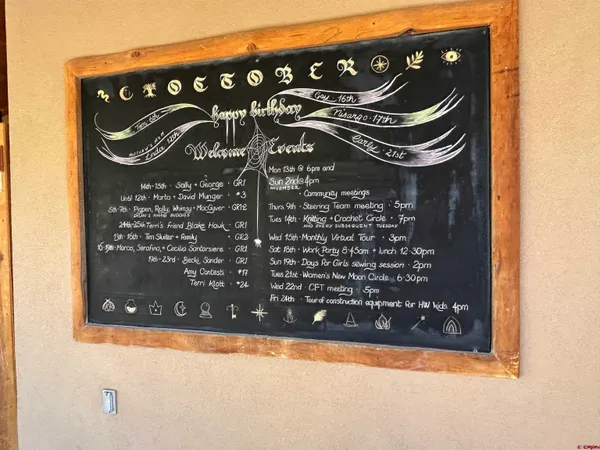 OCTOBER
happy birthday
Gay · 16th
Nirango · 17th
Carly · 21st
Welcome
Events
Mon 13th @ 6pm and
Sun 2nd @ 4pm
NOVEMBER
· Community meetings
Thurs 9th · Steering Team meeting · 5pm
Tues 14th · Knitting + Crochet Circle · 7pm
AND EVERY SUBSEQUENT TUESDAY
Wed 15th · Monthly Virtual Tour · 3pm
Sat 18th · Work Party 8:45am + lunch 12:30pm
Sun 19th · Days For Girls sewing session · 2pm
Tues 21st · Women's New Moon Circle · 6:30pm
Wed 22nd · CFT meeting · 5pm
Fri 24th · Tour of construction equipment for HW kids 4pm
14th-15th · Sally + George · GR1
Until 12th · Marta + David Munger · #3
5th-7th · Poppin, Rolly, Whimsy + MacGyver · GR1+2
24th-25th · Terri's friend Blake Hawk · GR1
13th-16th · Tim Skelter + Family · GR2
Marco, Serafina, + Cecilia Santarsiero · GR2
19th-23rd · Becky Sander · GR1
Amy Contasti · #17
Terri Klott · #24